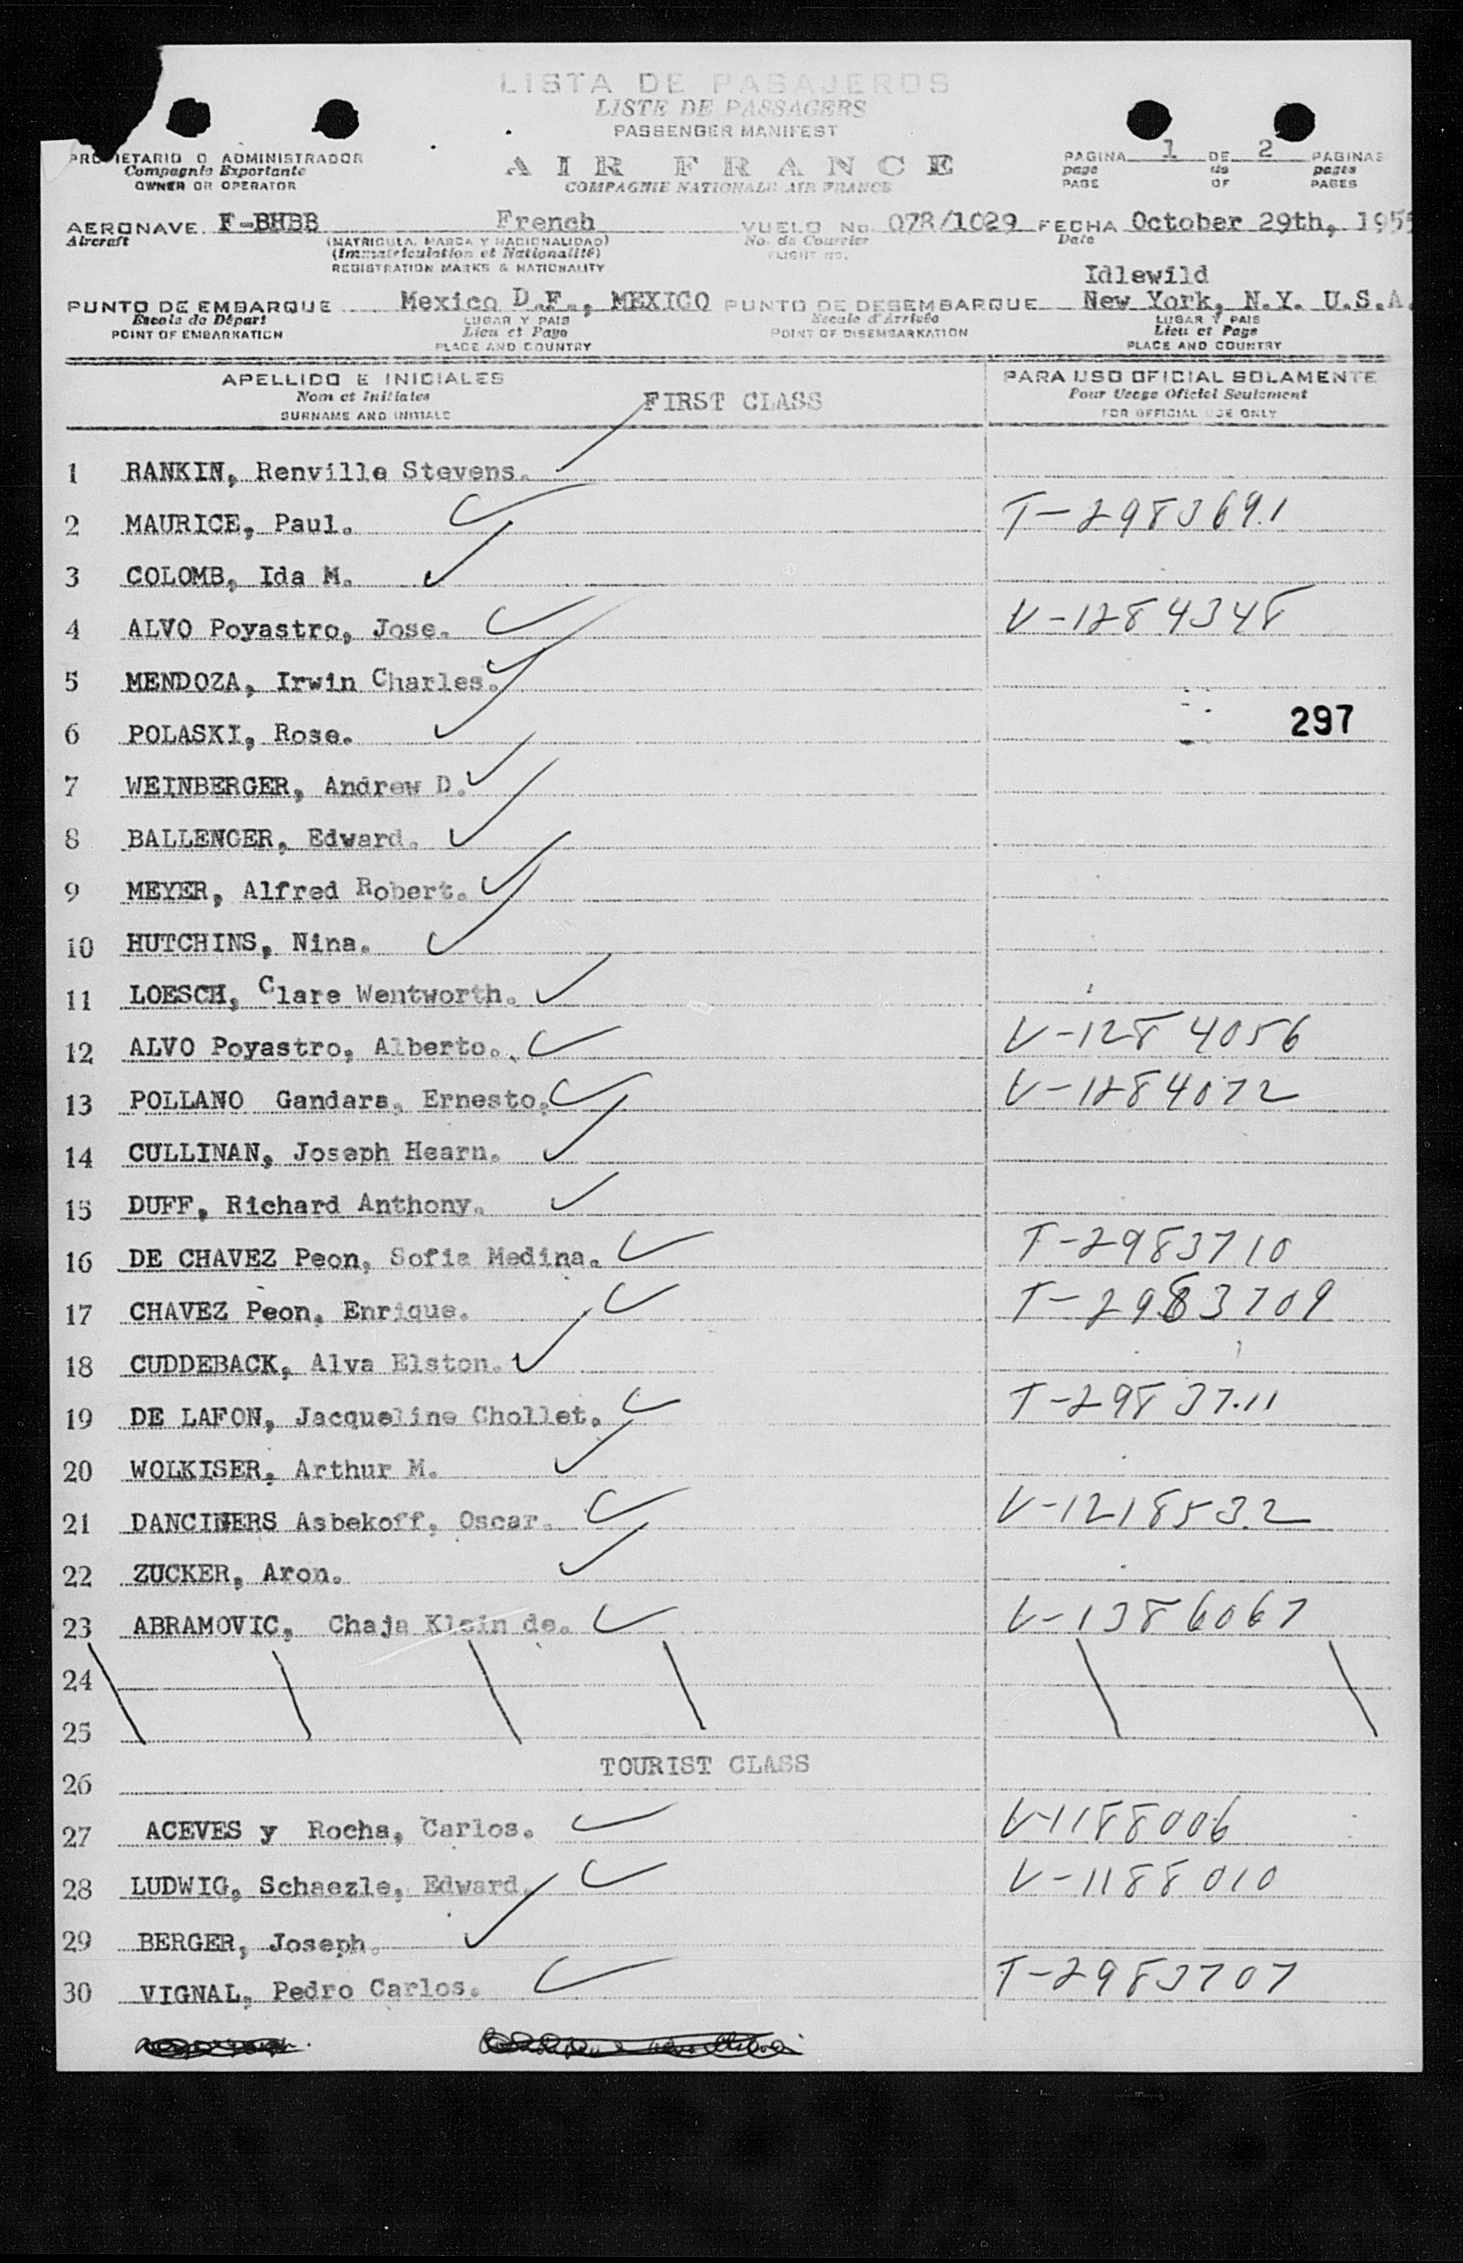 LISTA DE PASAJEROS
LISTE DE PASSAGERS
PASSENGER MANIFEST
AIR FRANCE
COMPAGNIE NATIONALE AIR FRANCE
PROPIETARIO O ADMINISTRADOR
Compagnie Exportante
OWNER OR OPERATOR
PAGINA 1 DE 2 PAGINAS
page de pages
PAGE OF PAGES
AERONAVE F-BHBB French VUELO No. 078/1029 FECHA October 29th, 195
Aircraft (MATRICULA, MARCA Y NACIONALIDAD) No. de Courrier Date
(Immatriculation et Nationalité) FLIGHT NO.
REGISTRATION MARKS & NATIONALITY
Idlewild
PUNTO DE EMBARQUE Mexico D.F., MEXICO PUNTO DE DESEMBARQUE New York, N.Y. U.S.A.
Escale de Départ LUGAR Y PAIS Escale d'Arrivée LUGAR Y PAIS
POINT OF EMBARKATION Lieu et Pays POINT OF DISEMBARKATION Lieu et Pays
PLACE AND COUNTRY PLACE AND COUNTRY
APELLIDO E INICIALES PARA USO OFICIAL SOLAMENTE
Nom et Initiales FIRST CLASS Pour Usage Officiel Seulement
SURNAME AND INITIALS FOR OFFICIAL USE ONLY
1 RANKIN, Renville Stevens.
2 MAURICE, Paul. T-2983691
3 COLOMB, Ida M.
4 ALVO Poyastro, Jose. V-1284348
5 MENDOZA, Irwin Charles.
6 POLASKI, Rose. 297
7 WEINBERGER, Andrew D.
8 BALLENGER, Edward.
9 MEYER, Alfred Robert.
10 HUTCHINS, Nina.
11 LOESCH, Clare Wentworth.
12 ALVO Poyastro, Alberto. V-1284056
13 POLLANO Gandara, Ernesto. V-1284072
14 CULLINAN, Joseph Hearn.
15 DUFF, Richard Anthony.
16 DE CHAVEZ Peon, Sofia Medina. T-2983710
17 CHAVEZ Peon, Enrique. T-2983709
18 CUDDEBACK, Alva Elston.
19 DE LAFON, Jacqueline Chollet. T-2983711
20 WOLKISER, Arthur M.
21 DANCINERS Asbekoff, Oscar. V-1218532
22 ZUCKER, Aron.
23 ABRAMOVIC, Chaja Klein de. V-1386067
24
25
TOURIST CLASS
26
27 ACEVES y Rocha, Carlos. V-1188006
28 LUDWIG, Schaezle, Edward. V-1188010
29 BERGER, Joseph.
30 VIGNAL, Pedro Carlos. T-2983707